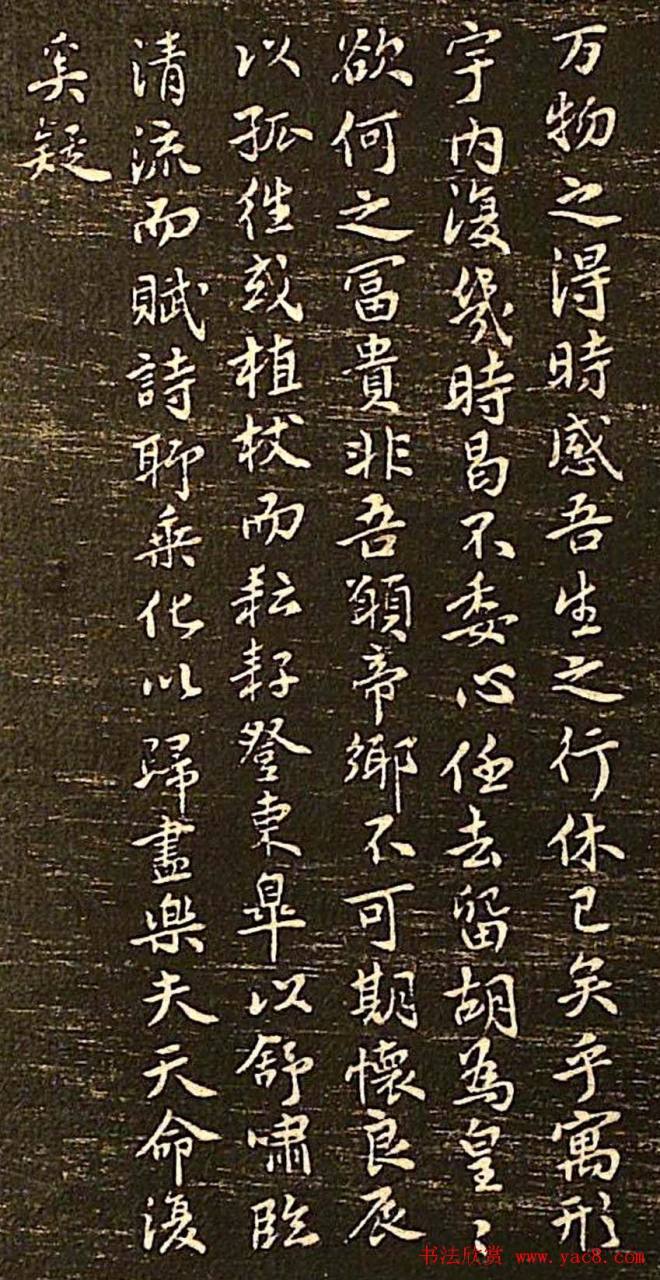 万物之得時感吾生之行休已矣乎寓形
宇内復幾時曷不委心任去留胡為皇〻
欲何之冨貴非吾願帝鄉不可期懷良辰
以孤往或植杖而耘耔登東皐以舒嘯臨
清流而賦詩聊乘化以歸盡樂夫天命復
奚疑
书法欣赏 www.yac8.com